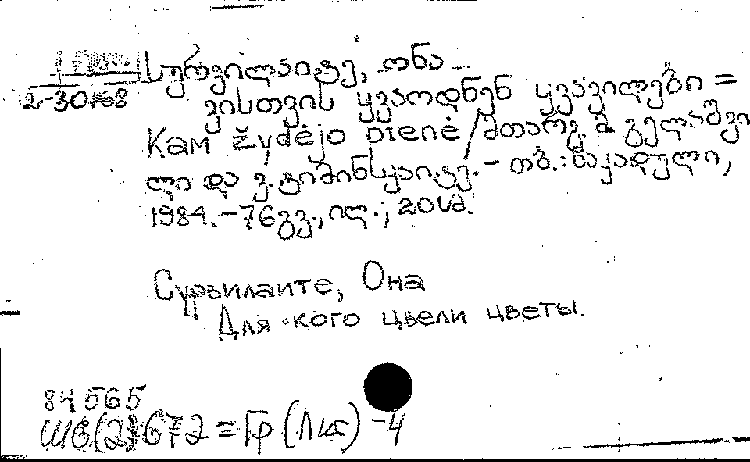 სურვილაიტე, ონა
2-30168
ვისთვის ყვაოდნენ ყვავილები =
Kam žydėjo pienė / მთარგ. მ. გელაშვი
ლი და ვ. ჟიმინსკაიტე. – თბ.: ნაკადული,
1984. – 76 გვ., ილ.; 20 სმ.
Сурвилаите, Она
Для кого цвели цветы.
84 565
Ш6(2)672 = Гр (Лит) -4